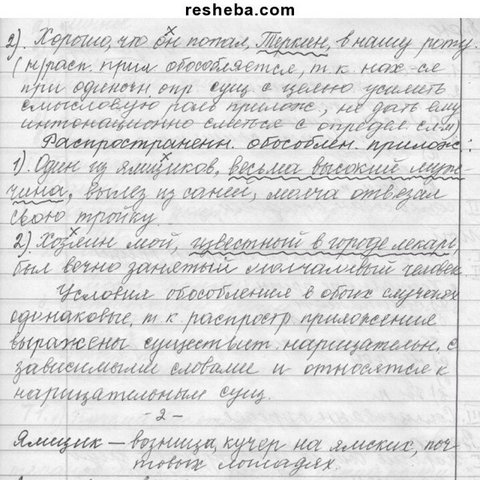 resheba.com
2). Хорошо, что он попал, Теркин, в нашу роту.
(н/расп. прил обособляется, т.к нах-ся
при одиночн опр сущ с целью усилить
смысловую роль прилож, не дать ему
интонационно слиться с определ. слм)
Распространенн. обособлен. прилож:
1). Один из ямщиков, весьма высокий муж-
чина, вылез из саней, молча отвязал
свою тройку.
2). Хозяин мой, известный в городе лекарь,
был вечно занятый молчаливый человек
Условия обособления в обоих случаях
одинаковые, т.к распростр приложения
выражены существит. нарицательн. с
зависимыми словами и относятся к
нарицательным сущ.
-2-
Ямщик – возница, кучер на ямских, поч-
товых лошадях.